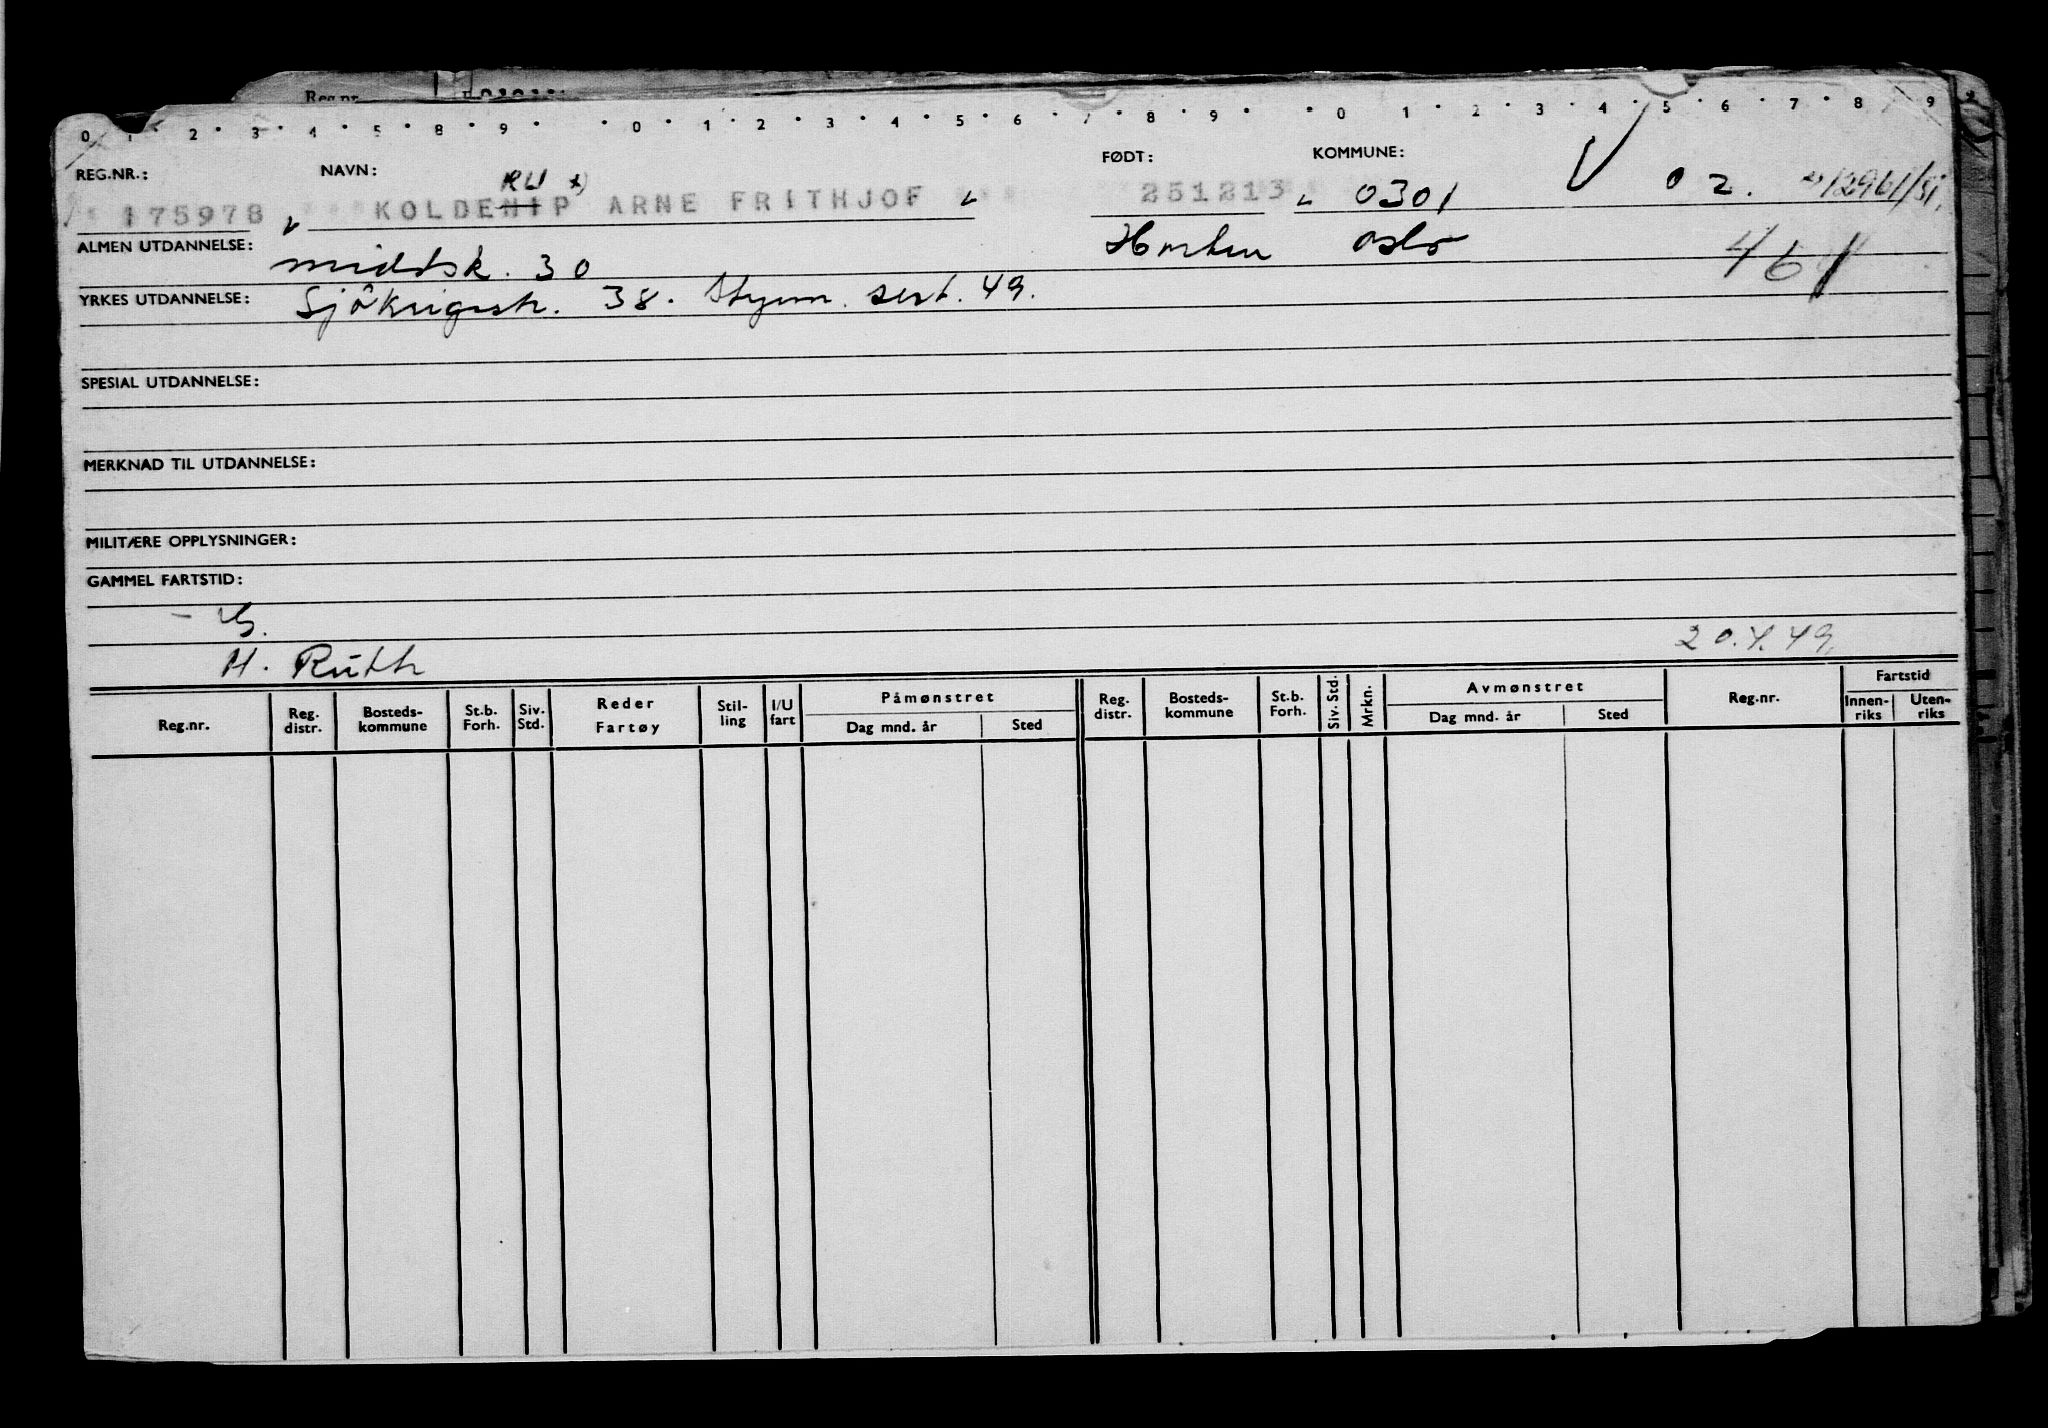 Reg.nr.
0 1 2 3 4 5 8 9 0 1 2 3 4 5 6 7 8 9 0 1 2 3 4 5 6 7 8 9
REG.NR.: NAVN: RU x) FØDT: KOMMUNE:
175978 KOLDEHIP ARNE FRITHJOF 251213 0301 02. 12961/51.
ALMEN UTDANNELSE: middsk. 30 Horten Oslo 461
YRKES UTDANNELSE: Sjökrigssk. 38. Styrm. sert. 49.
SPESIAL UTDANNELSE:
MERKNAD TIL UTDANNELSE:
MILITÆRE OPPLYSNINGER:
GAMMEL FARTSTID:
G.
H. Ruth 20.4.49.
Reg.nr. Reg. distr. Bosteds-kommune St.b. Forh. Siv. Std. Reder Fartøy Stil-ling I/U fart Påmønstret Dag mnd. år Sted Reg. distr. Bosteds-kommune St.b. Forh. Siv. Std. Mrkn. Avmønstret Dag mnd. år Sted Reg.nr. Fartstid Innen-riks Uten-riks